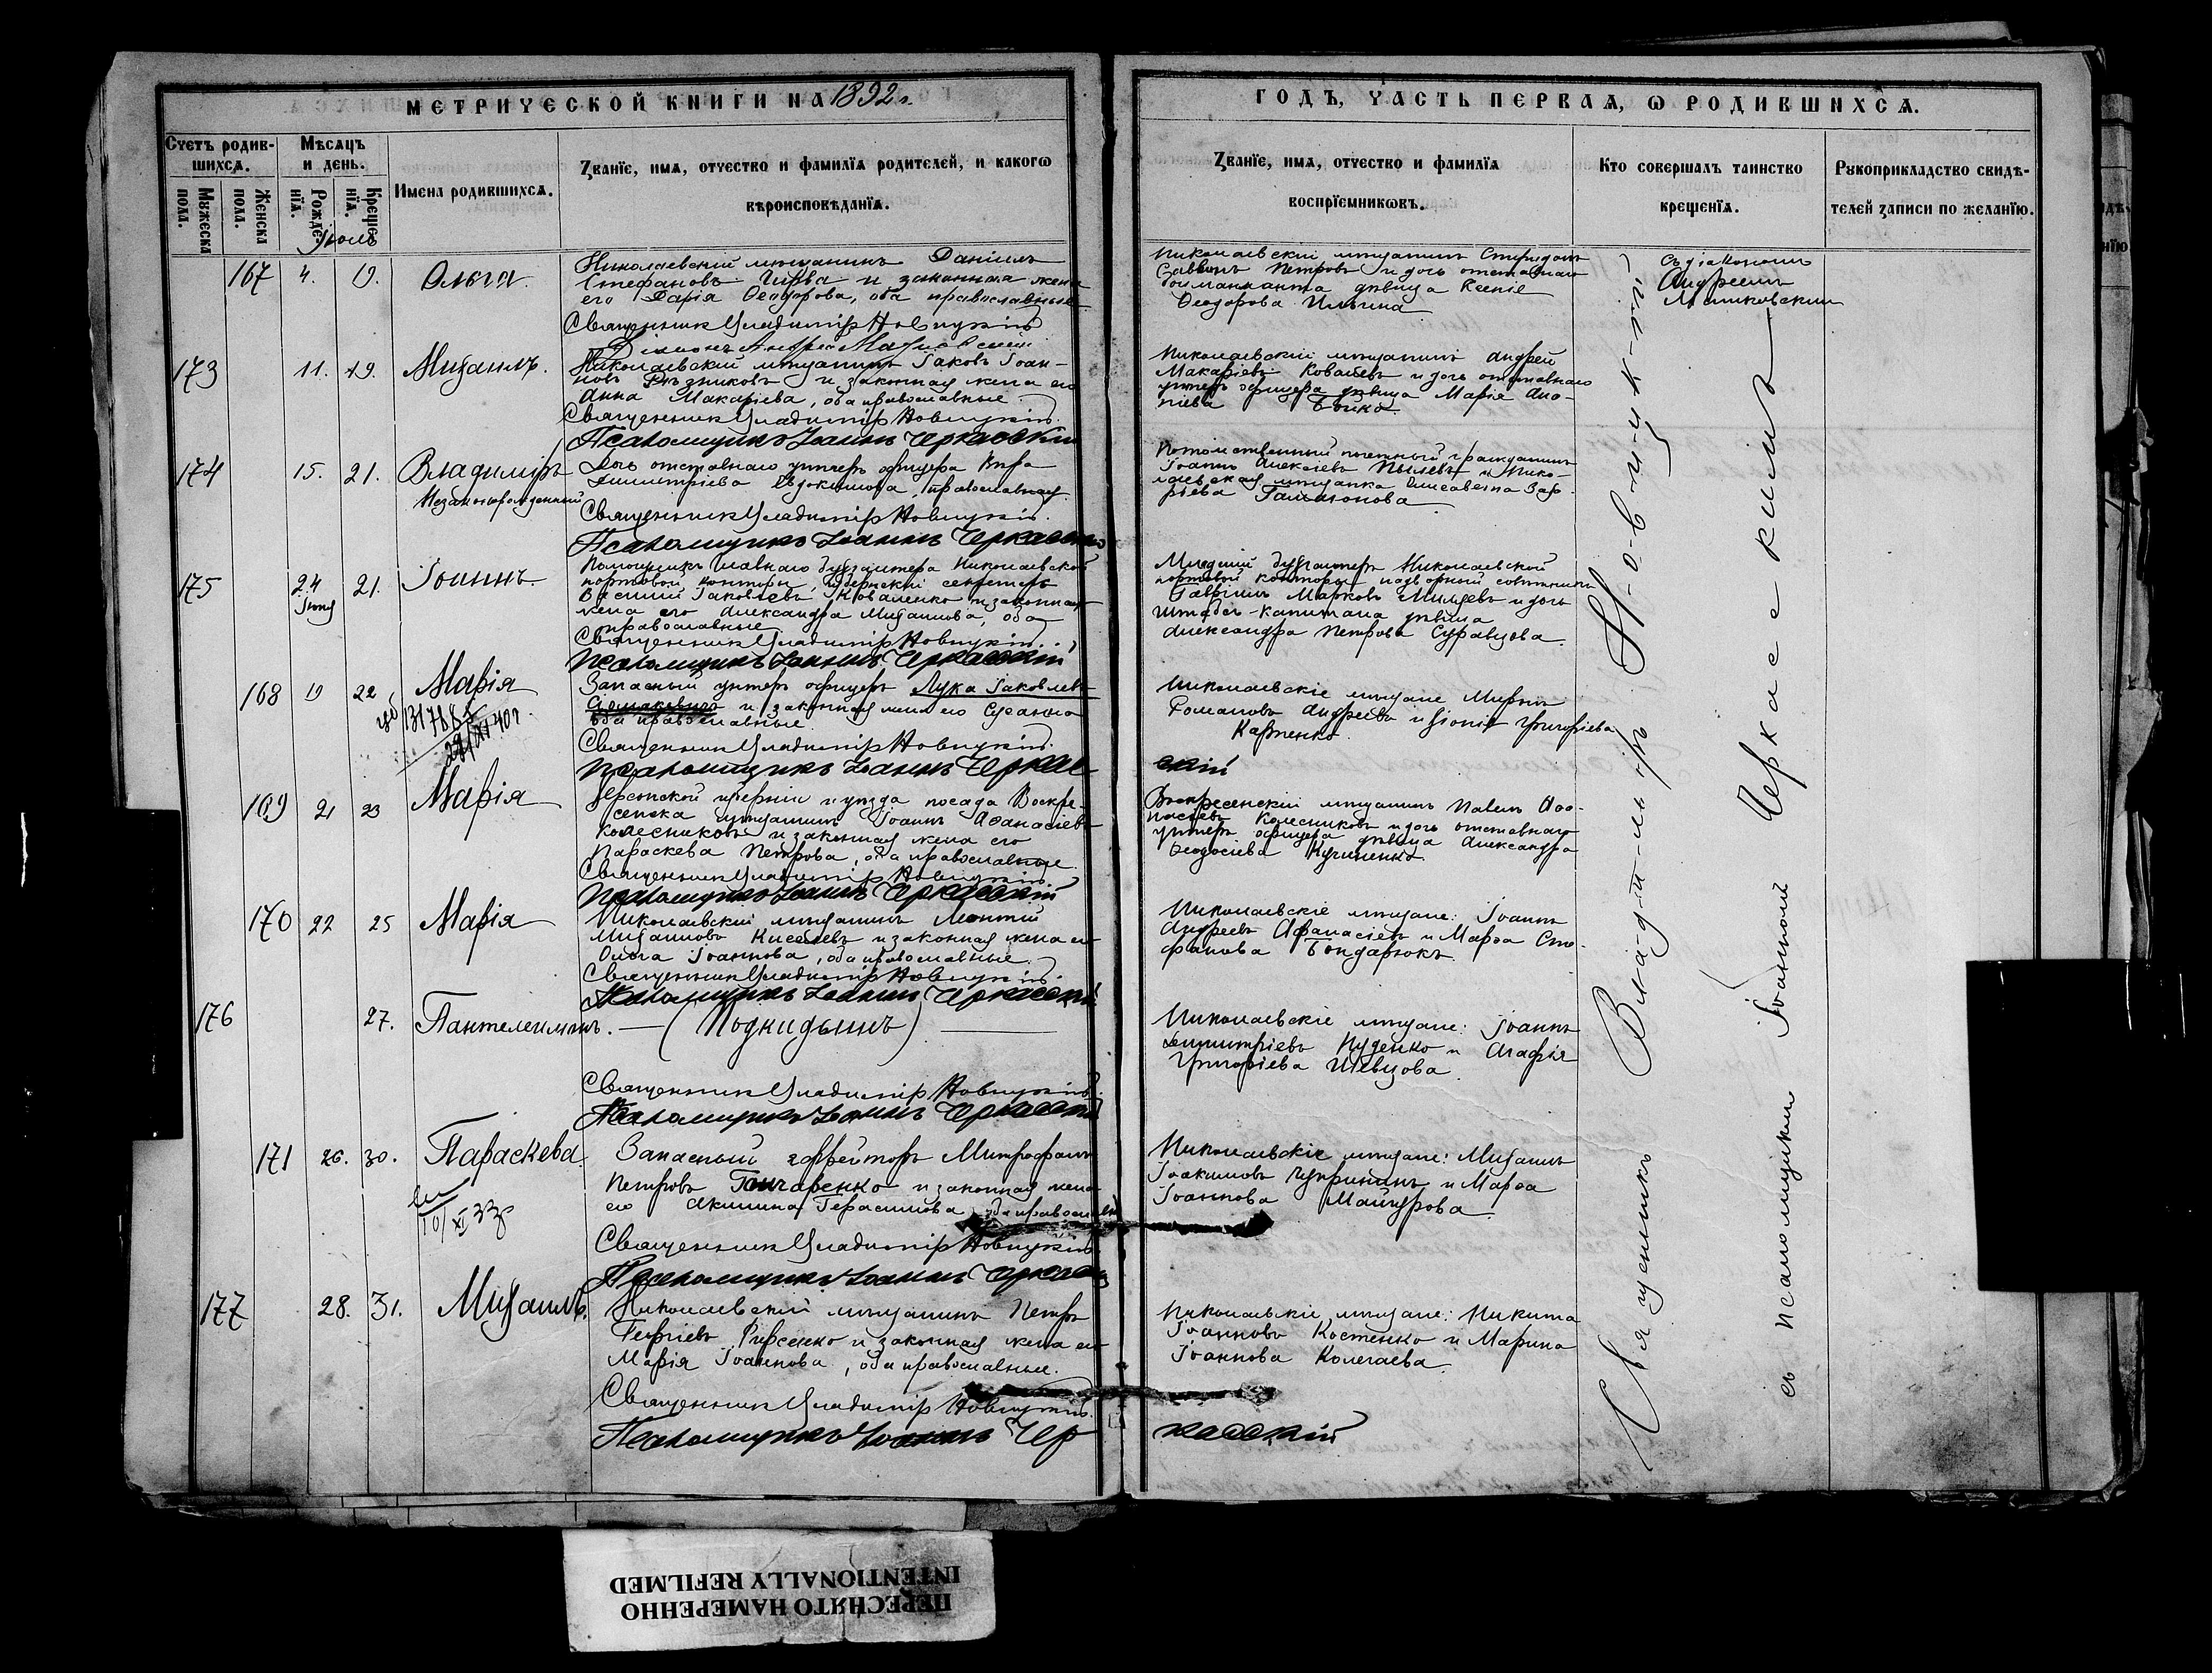 МЕТРИЧЕСКОЙ КНИГИ НА 1892 г.
Счетъ родившихся.
Мужеска пола.
Женска пола.
Мѣсяцъ и день.
Рожденїя.
Крещенїя.
Имена родившихся.
Званїе, имя, отчество и фамилїя родителей, и какогω
вѣроисповѣданїя.
Іюль
167 4. 19. Ольга.
Николаевскій мѣщанинъ Даніилъ
Стефановъ Чирва и законная жена
его Дарія Ѳеодорова, оба православные
Священникъ Владиміръ Новицкій
Діаконъ Андрей
173 11. 19. Михаилъ.
Николаевскій мѣщанинъ Іаковъ Іоан-
новъ Рѣзниковъ и законная жена его
Анна Макаріева, оба православные.
Священникъ Владиміръ Новицкій
Псаломщикъ Іоаннъ Черкасскій
174 15. 21. Владиміръ
Незаконнорожденный
Дочь отставнаго унтеръ офицера Вѣра
Димитріева Евдокимова, православная
Священникъ Владиміръ Новицкій.
Псаломщикъ Іоаннъ Черкасскій
175 24 Іюня 21. Іоаннъ
Помощникъ главнаго бухгалтера Николаевской
портовой конторы губернскій секретарь
Василій Іаковлевъ Коваленко и законная
жена его Александра Михаилова, оба
православные
Священникъ Владиміръ Новицкій
Псаломщикъ Іоаннъ Черкасскій
168 19 22 Марія
131768
Запасный унтеръ офицеръ Лука Іаковлевъ
и законная жена его Сусанна
оба православные
Священникъ Владиміръ Новицкій.
Псаломщикъ Іоаннъ Черкас
169 21 23 Марія
Херсонской губерніи и уѣзда посада Воскре-
сенска мѣщанинъ Іоаннъ Аѳанасіевъ
Колесниковъ и законная жена его
Параскева Петрова, оба православные
Священникъ Владиміръ Новицкій
Псаломщикъ Іоаннъ Черкасскій
170 22 25 Марія
Николаевскій мѣщанинъ Леонтій
Михаиловъ Киселевъ и законная жена его
Ольга Іоаннова, оба православные.
Священникъ Владиміръ Новицкій
Псаломщикъ Іоаннъ Черкасскій
176 27. Пантелеимонъ. — (Подкидышъ) —
Священникъ Владиміръ Новицкій.
Псаломщикъ Іоаннъ Черкасскій
171 26. 30. Параскева.
10/XI 33
Запасный ефрейторъ Митрофанъ
Петровъ Гончаренко и законная жена
его Акилина Герасимова, оба православн
Священникъ Владиміръ Новицкій
Псаломщикъ Іоаннъ Черкасскій
177 28. 31. Михаилъ.
Николаевскій мѣщанинъ Петръ
Георгіевъ Фирсенко и законная жена его
Марія Іоаннова, оба православные.
Священникъ Владиміръ Новицкій
Псаломщикъ Іоаннъ Чер
ГОДЪ, ЧАСТЬ ПЕРВАЯ, Ѡ РОДИВШИХСЯ.
Званїе, имя, отчество и фамилїя
воспрїемникωвъ.
Кто совершалъ таинство
крещенїя.
Рукоприкладство свидѣ-
телей записи по желанїю.
Николаевскій мѣщанинъ Спиридонъ
Саввинъ Петровъ и дочь отставнаго
боцманмата дѣвица Ксенія
Ѳеодорова Ильина
Андрей
Макаріевъ Ковалевъ и дочь отставнаго
унтеръ офицера дѣвица Марія
Бойко.
Потомственный почетный гражданинъ
Іоаннъ Алексіевъ Пылевъ и Нико-
лаевская мѣщанка Елисавета Зах-
ріева Гамаюнова
Младшій бухгалтеръ Николаевской
портовой конторы надворный совѣтникъ
Гавріилъ Марковъ и дочь
штабсъ-капитана дѣвица
Александра Петрова Суравцова.
Николаевскіе мѣщане Миронъ
Романовъ Андреевъ и Григоріева
Карпенко.
скій
Воскресенскій мѣщанинъ Павелъ Аѳа-
насіевъ Колесниковъ и дочь отставнаго
унтеръ офицера дѣвица Александра
Ѳеодосіева Кучиненко.
Николаевскіе мѣщане: Іоаннъ
Андреевъ Афанасіевъ и Марѳа Сте-
фанова Бондарюкъ.
Николаевскіе мѣщане: Іоаннъ
Димитріевъ Нуденко и Агафія
Григоріева Шевцова.
Николаевскіе мѣщане: Михаилъ
Іоакимовъ Чупринъ и Марѳа
Іоаннова Майнурова.
Николаевскіе мѣщане: Никита
Іоанновъ Костенко и Марина
Іоаннова Колегаева.
касскій
съ діакономъ
Андреемъ
Священникъ Владиміръ Новицкій
съ псаломщикомъ Іоанномъ Черкасскимъ
ПЕРЕСНЯТО НАМЕРЕННО
INTENTIONALLY REFILMED